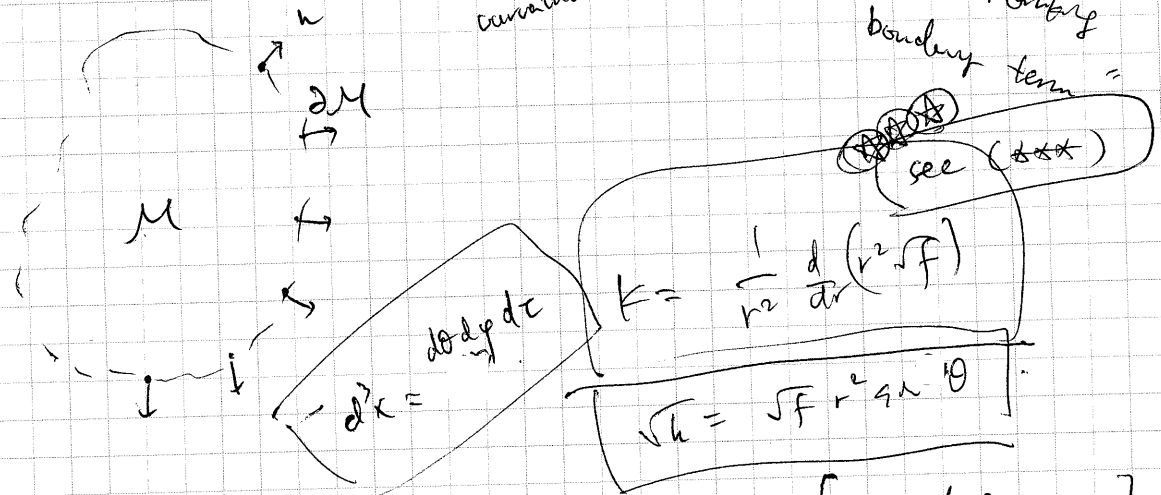 n
boundary term "
∂M
see (***)
M
K = 1/r² d/dr (r²√f)
d³x = dθ dφ dτ
√h = √f r² sin θ